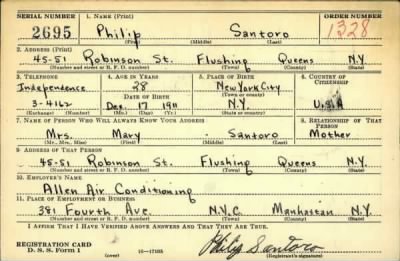 SERIAL NUMBER 1. NAME (Print) ORDER NUMBER
2695 Philip Santoro 1328
(First) (Middle) (Last)
2. ADDRESS (Print)
45-51 Robinson St. Flushing Queens N.Y.
(Number and street or R. F. D. number) (Town) (County) (State)
3. TELEPHONE 4. AGE IN YEARS 5. PLACE OF BIRTH 6. COUNTRY OF CITIZENSHIP
Independence 28 New York City
DATE OF BIRTH (Town or county)
3-4162 Dec. 17 1911 N.Y. U.S.A
(Exchange) (Number) (Mo.) (Day) (Yr.) (State or country)
7. NAME OF PERSON WHO WILL ALWAYS KNOW YOUR ADDRESS 8. RELATIONSHIP OF THAT PERSON
Mrs. Mary Santoro Mother
(Mr., Mrs., Miss) (First) (Middle) (Last)
9. ADDRESS OF THAT PERSON
45-51 Robinson St. Flushing Queens N.Y.
(Number and street or R. F. D. number) (Town) (County) (State)
10. EMPLOYER'S NAME
Allen Air Conditioning
11. PLACE OF EMPLOYMENT OR BUSINESS
381 Fourth Ave. N.Y.C. Manhattan N.Y.
(Number and street or R. F. D. number) (Town) (County) (State)
I AFFIRM THAT I HAVE VERIFIED ABOVE ANSWERS AND THAT THEY ARE TRUE.
REGISTRATION CARD
D. S. S. Form 1 (over) 16—17105 Philip Santoro
(Registrant's signature)